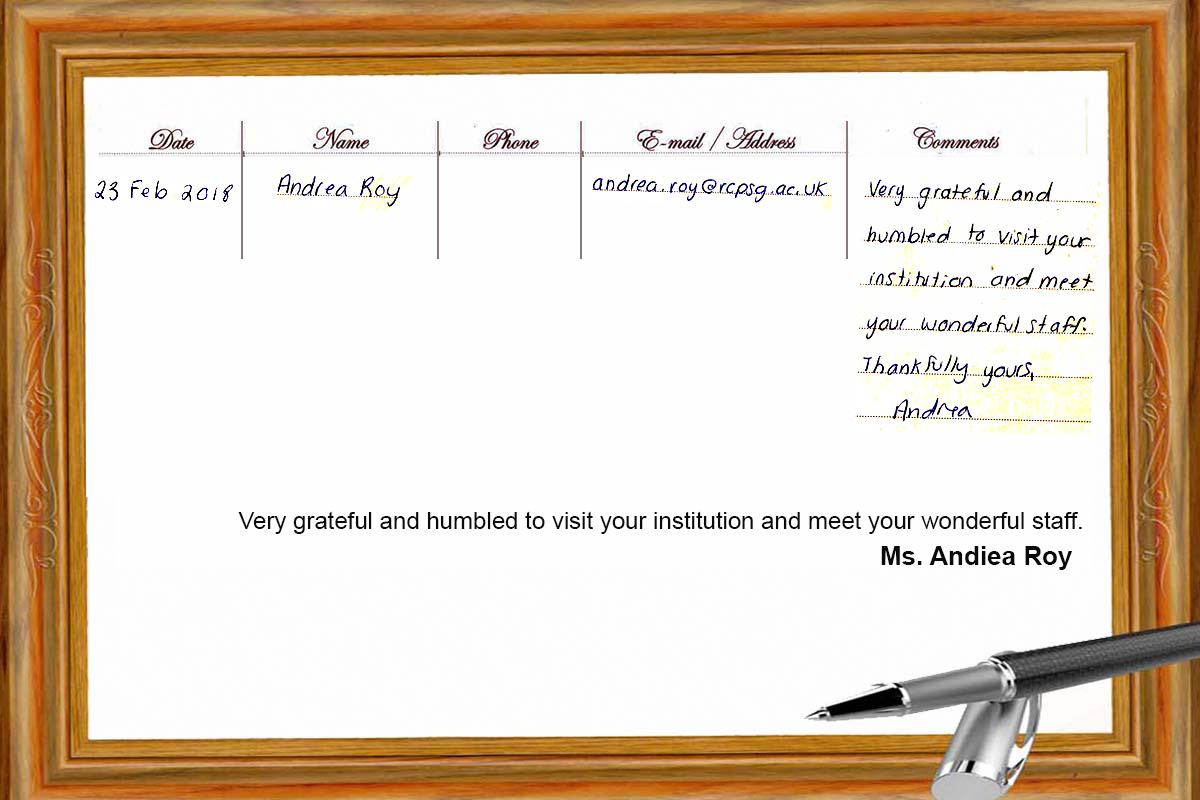 Date Name Phone E-mail / Address Comments
23 Feb 2018 Andrea Roy andrea.roy@rcpsg.ac.uk Very grateful and
humbled to visit your
institution and meet
your wonderful staff.
Thankfully yours,
Andrea
Very grateful and humbled to visit your institution and meet your wonderful staff.
Ms. Andiea Roy